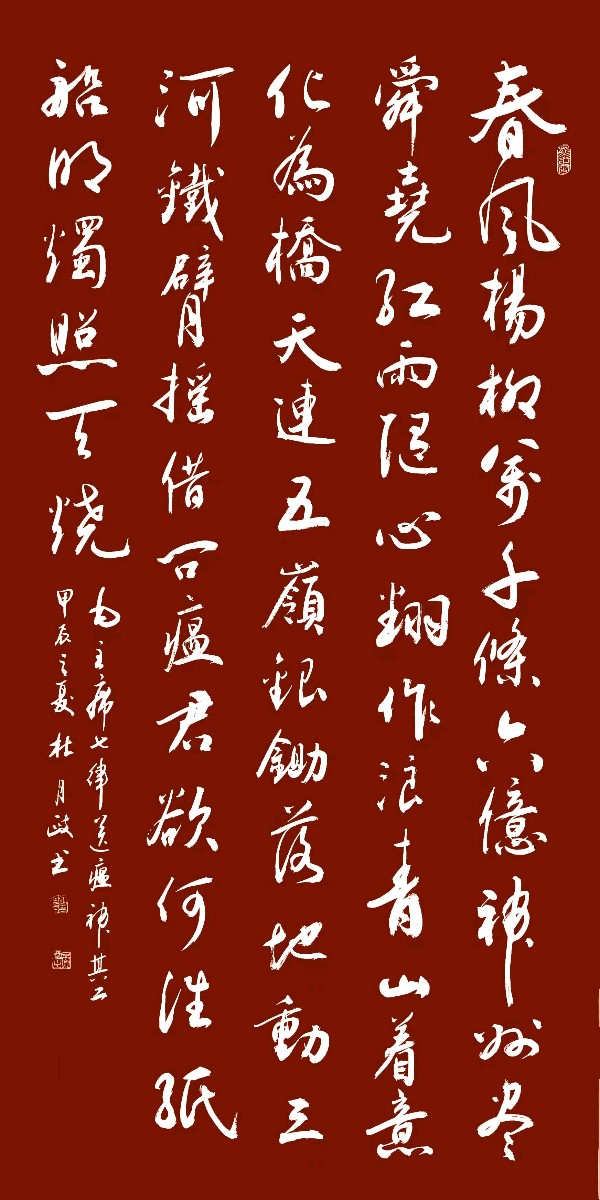 春風楊柳萬千條六億神州尽
舜堯紅雨随心翻作浪青山着意
化為橋天連五嶺銀鋤落地動三
河鐵臂摇借问瘟君欲何往紙
船明燭照天燒
毛主席七律送瘟神其二
甲辰之夏杜月政书